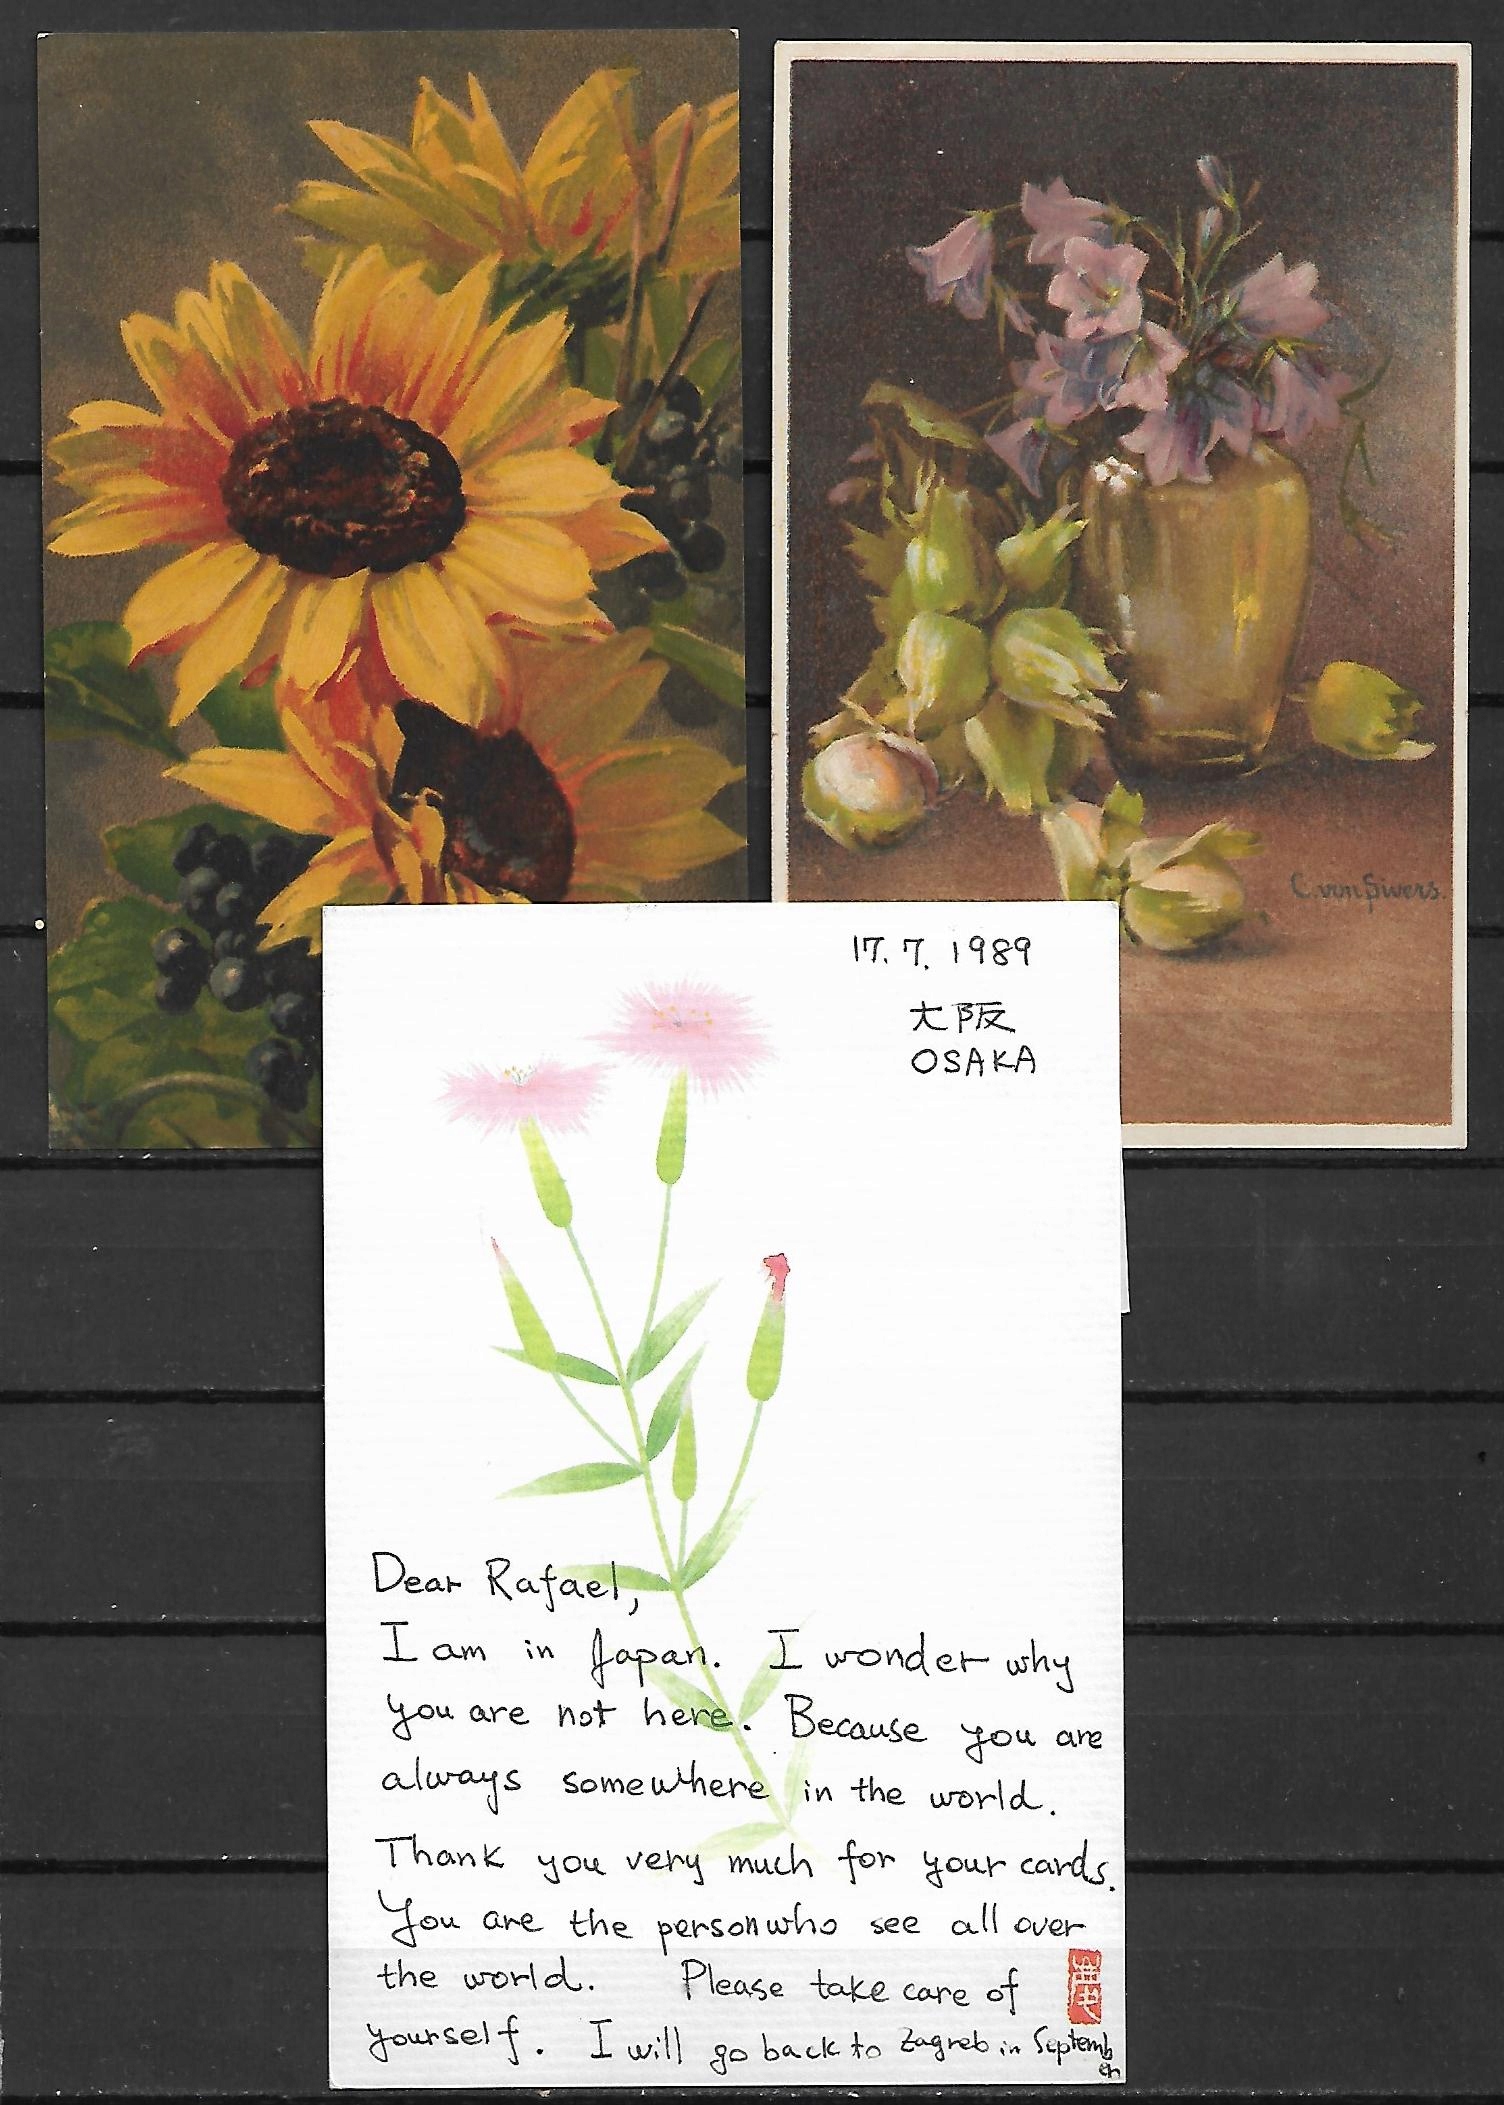 C. von Sivers.
17. 7. 1989
大阪
OSAKA
Dear Rafael,
I am in Japan. I wonder why
you are not here. Because you are
always somewhere in the world.
Thank you very much for your cards.
You are the person who see all over
the world. Please take care of
yourself. I will go back to Zagreb in Septemb
er